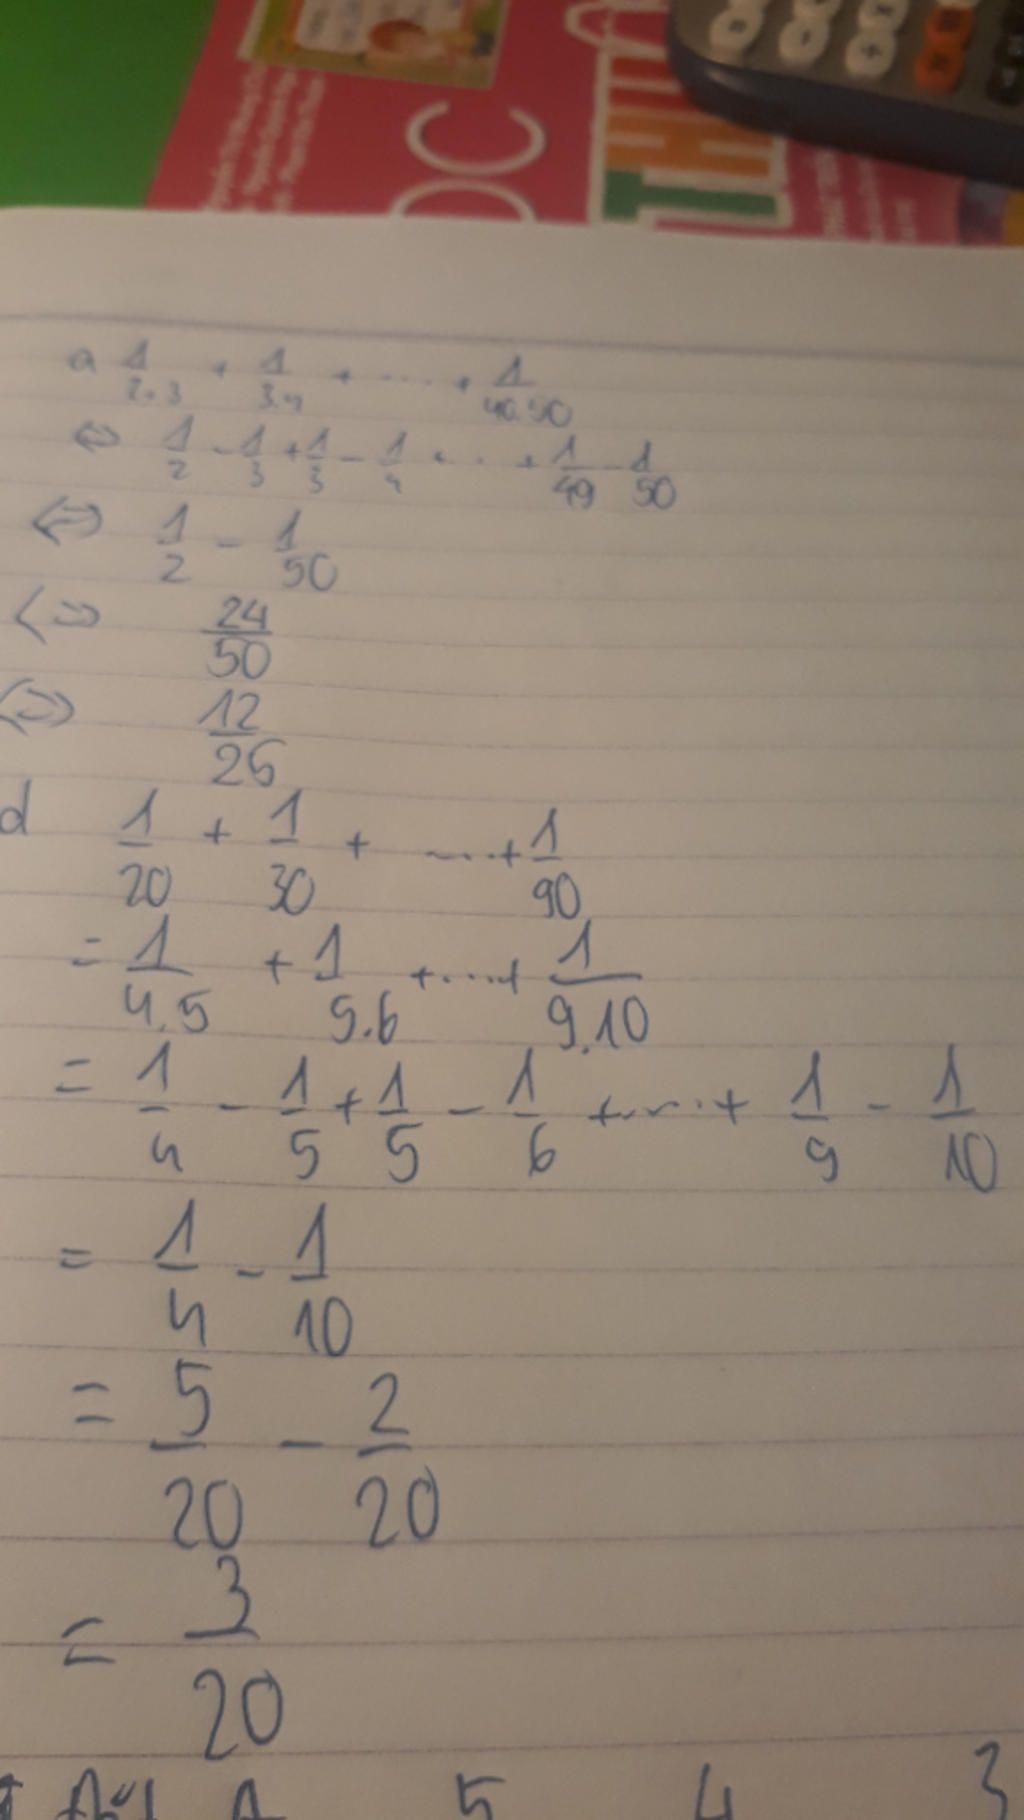 ĐC
THI
a 1/2.3 + 1/3.4 + .... + 1/49.50
<=> 1/2 - 1/3 + 1/3 - 1/4 + ... + 1/49 - 1/50
<=> 1/2 - 1/50
<=> 24/50
<=> 12/26
d 1/20 + 1/30 + ....+ 1/90
= 1/4.5 + 1/5.6 +....+ 1/9.10
= 1/4 - 1/5 + 1/5 - 1/6 +....+ 1/9 - 1/10
= 1/4 - 1/10
= 5/20 - 2/20
= 3/20
5 4 3